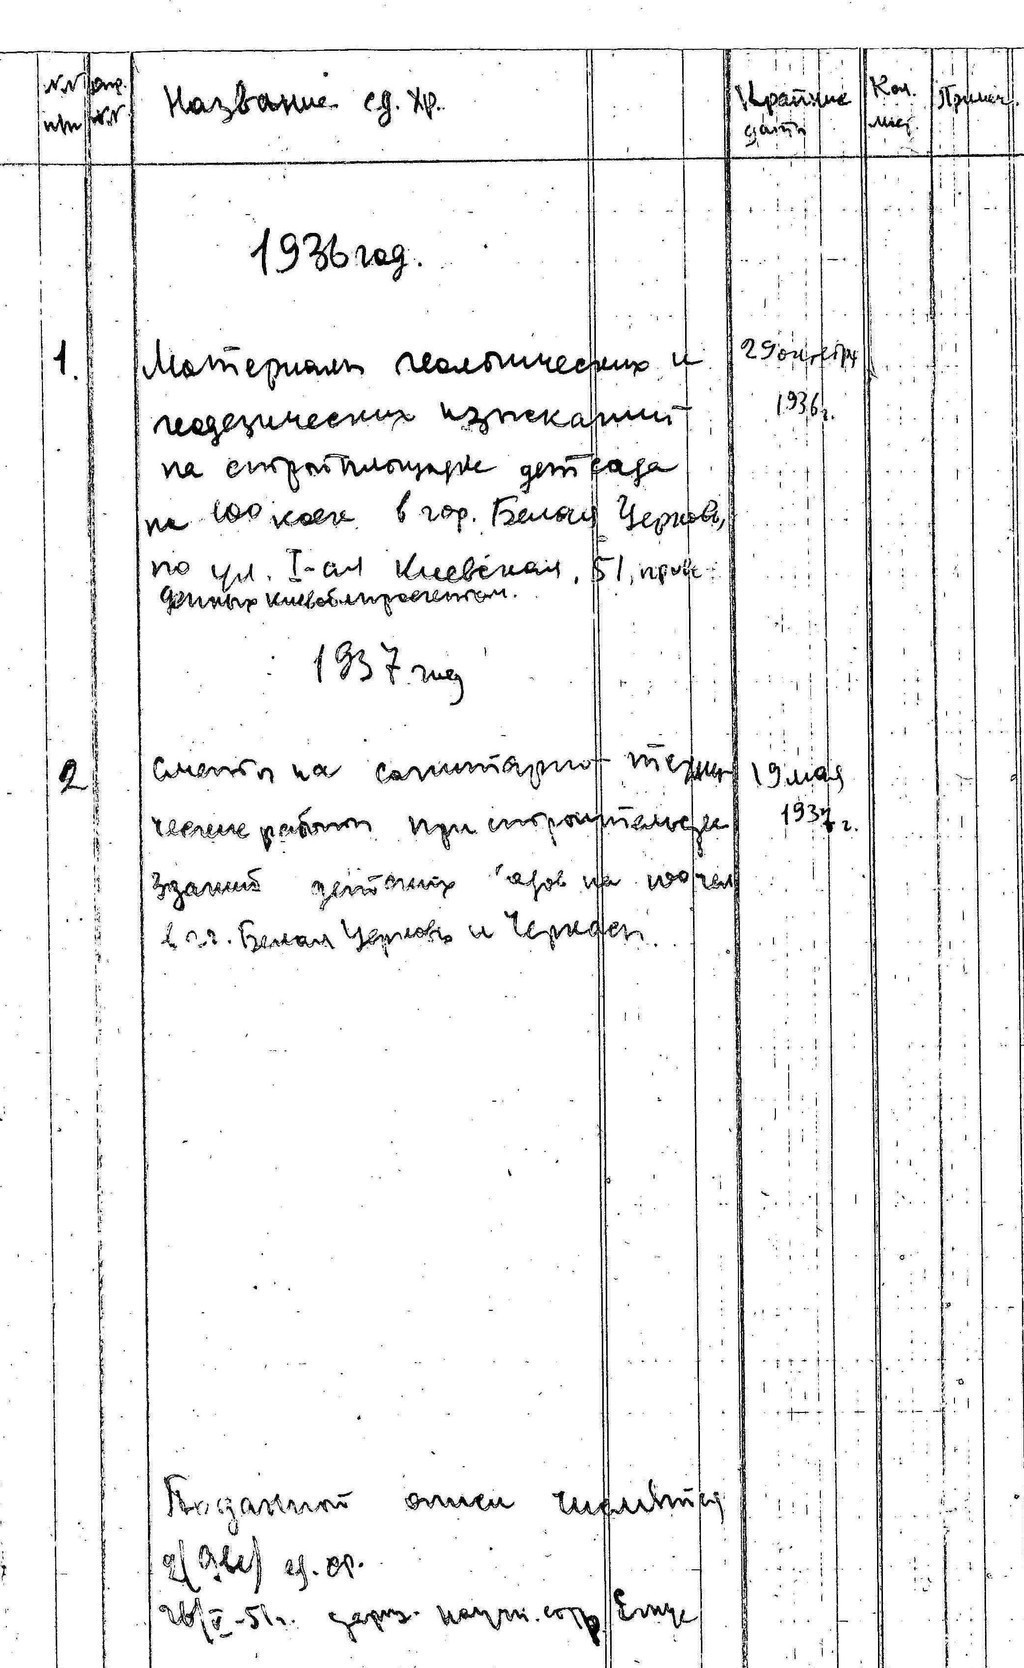 №№ арх. Название ед. хр. Крайние Кол. Примеч.
п/п №№ даты лист.
1936 год.
1. Материалы геологических и 29 октября
геодезических изысканий 1936 г.
на стройплощадке детсада
на 100 коек в гор. Белая Церковь,
по ул. I-ая Киевская, 51, прове-
денных Киевоблпроектом.
1937 год
2 Сметы на санитарно-техни 19 мая
ческие работы при строительстве 1937 г.
зданий детских садов на 100 чел
в г.г. Белая Церковь и Черкассы.
По данной описи числится
2 (две) ед. хр.
26/V-51 г. научн. сотр